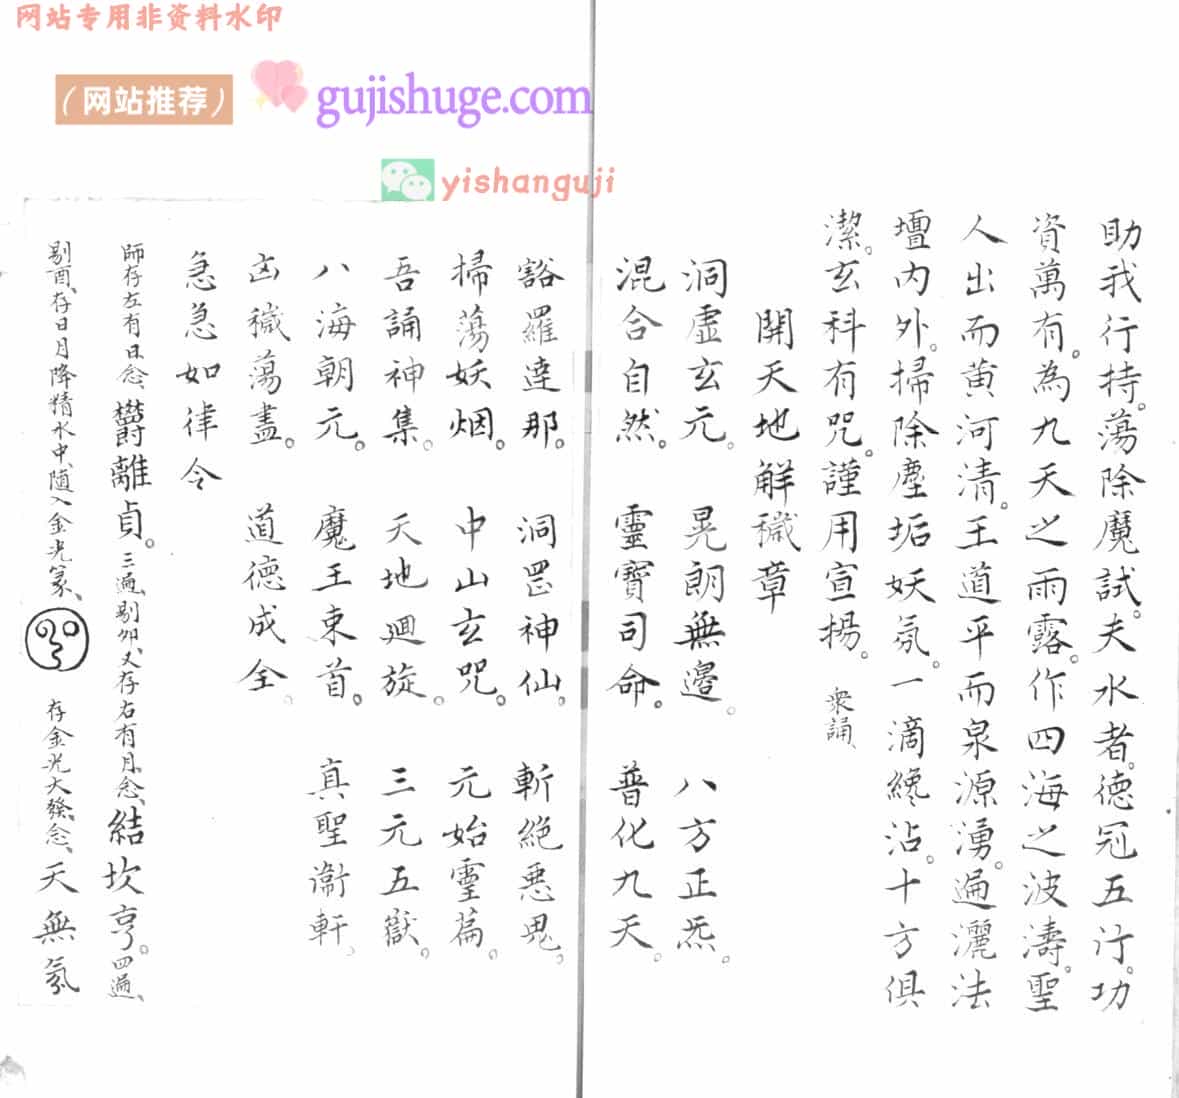 网站专用非资料水印
（网站推荐）
gujishuge.com
yishanguji
助我行持。蕩除魔試。夫水者。德冠五行。功
資萬有。為九天之雨露。作四海之波濤。聖
人出而黄河清。王道平而泉源湧。遍灑法
壇内外。掃除塵垢妖氛。一滴纔沾。十方俱
潔。玄科有咒。謹用宣揚。衆誦、
開天地解穢章
洞虛玄元。 晃朗無邊。 八方正炁。
混合自然。 靈寶司命。 普化九天。
谿羅達那。 洞罡神仙。 斬絶惡鬼。
掃蕩妖烟。 中山玄咒。 元始靈篇。
吾誦神集。 天地廻旋。 三元五嶽。
八海朝元。 魔王束首。 真聖衞軒、
凶穢蕩盡。 道德成全、
急急如律令
師存左有日、念、欝離貞。三遍、剔卯、又存右有月、念、結坎亨。四遍、
剔酉、存日月降精水中、随入金光篆、 存金光大發、念、天無氛